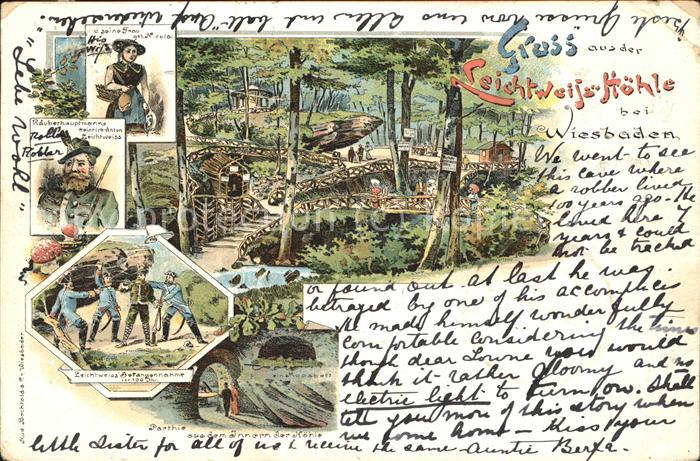 Beste Grüsse von uns Allen und bald "Auf Wiedersehen."
"Lebe Wohl"
u. seine Frau
geb. Nicolai
His
Wife
Räuberhauptmann
Heinrich Anton
Leichtweiss
Robber
Gruss aus der
Leichtweiss-Höhle
bei
Wiesbaden
We went to see
this cave where
a robber lived
100 years ago - He
lived here 7
years & could
not be tracked
or found out at last he was
betrayed by one of his accomplices
He made himself wonderfully
comfortable considering the times
though dear you would
think it rather gloomy and no
electric light to turn on. Shall
tell you more of this story when
we come home - Kiss your
little Sister for all of us & receive the same Auntie Berta.
Leichtweiss Gefangennahme
vor 100 Jhr.
Parthie
aus dem Innern der Höhle
Rud. Bechtold & Co. Wiesbaden